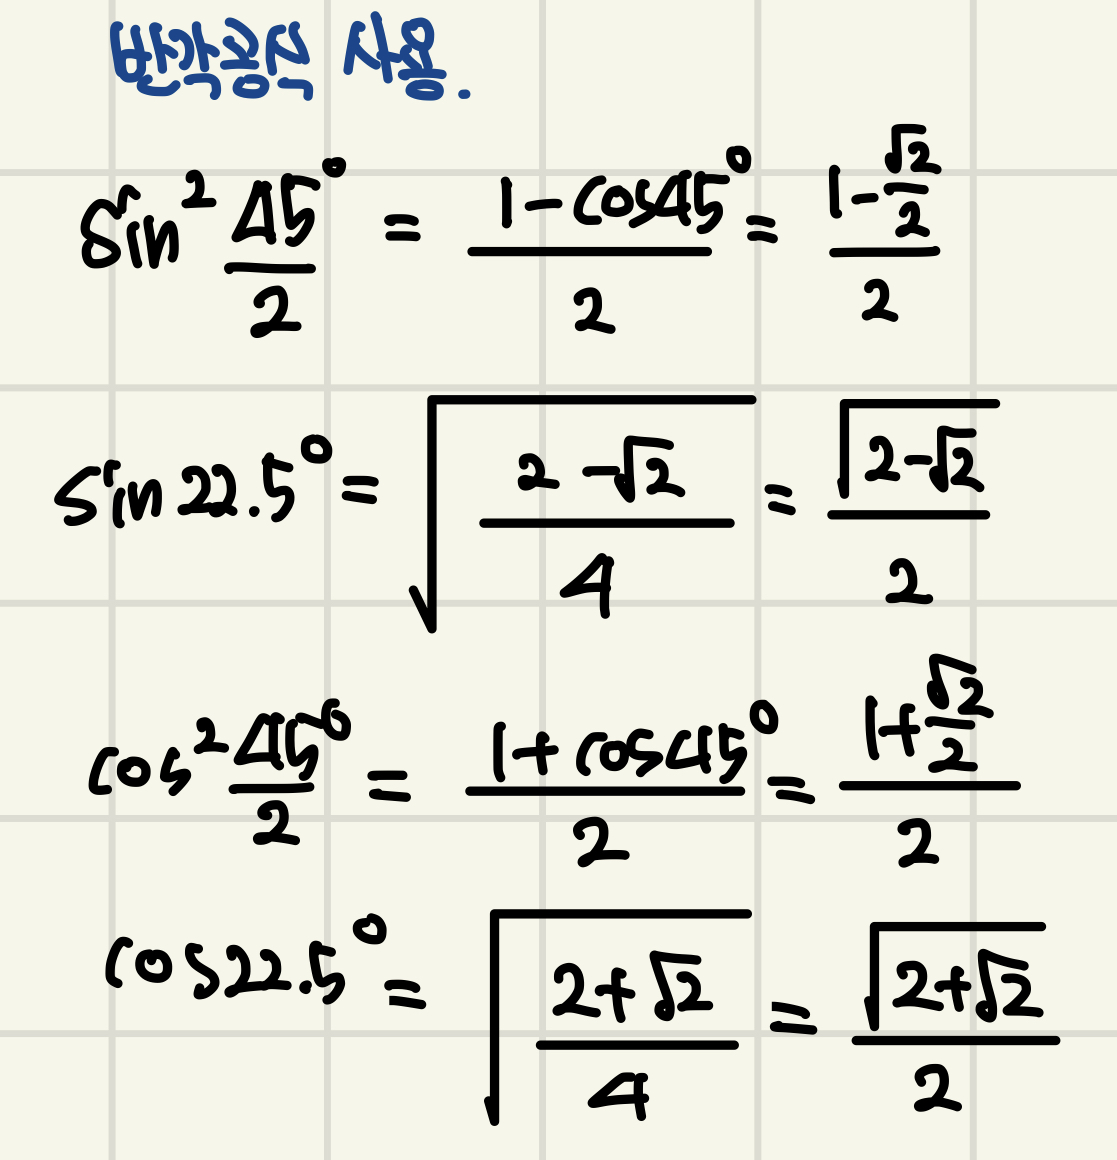 반각공식 사용.
sin² 45°/2 = (1-cos45°)/2 = (1-√2/2)/2
sin22.5° = √((2-√2)/4) = √(2-√2)/2
cos² 45°/2 = (1+cos45°)/2 = (1+√2/2)/2
cos22.5° = √((2+√2)/4) = √(2+√2)/2